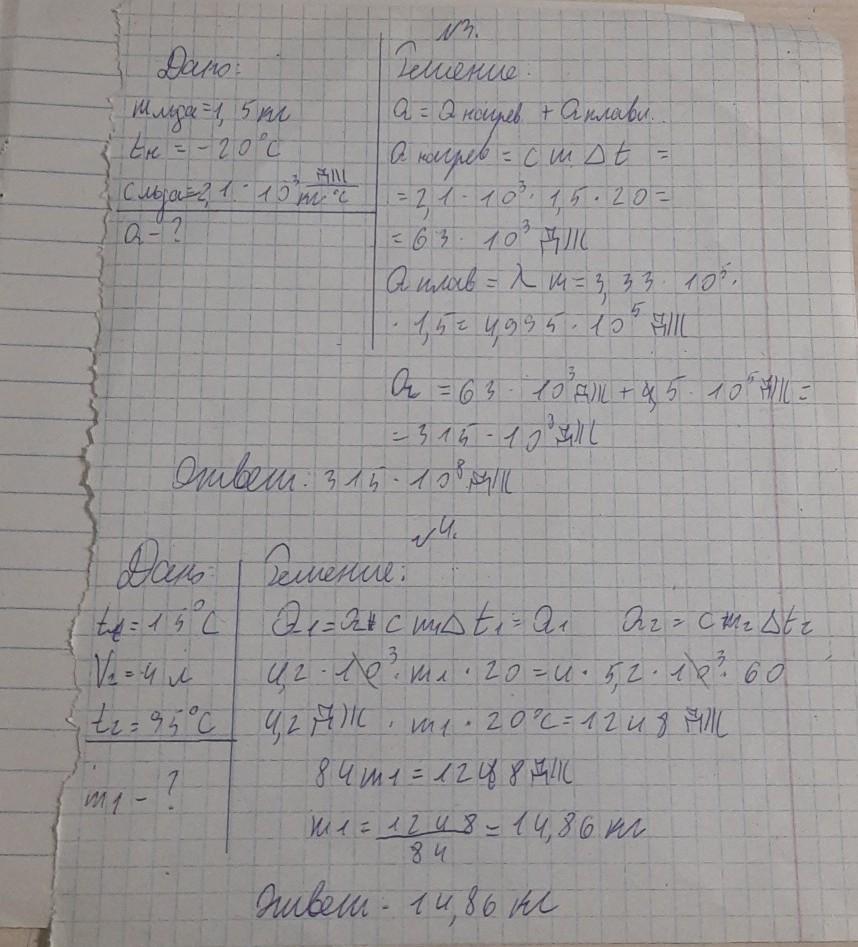 №3.
Дано:
mльда=1,5кг
tн = -20°C
cльда=2,1·10³ Дж/кг·°C
Q - ?
Решение:
Q = Qнагрев + Qплавл.
Qнагрев = c m Δt =
= 2,1·10³·1,5·20=
= 63·10³ Дж
Qплав = λ m = 3,33·10⁵·
·1,5 = 4,995·10⁵ Дж
= 63·10³ Дж + 4,5·10⁵ Дж =
= 315·10³ Дж
Ответ: 315·10⁸ Дж
№4.
Дано:
= 15°C
= 4 л
t2 = 95°C
m1 - ?
Решение:
c m1 Δt1 = Q1 Q2 = c m2 Δt2
4,2·10³·m1·20 = 4·5,2·10³·60
4,2 Дж · m1 · 20°C = 1248 Дж
84m1 = 1248 Дж
m1 = 1248/84 = 14,86 кг
Ответ - 14,86 кг